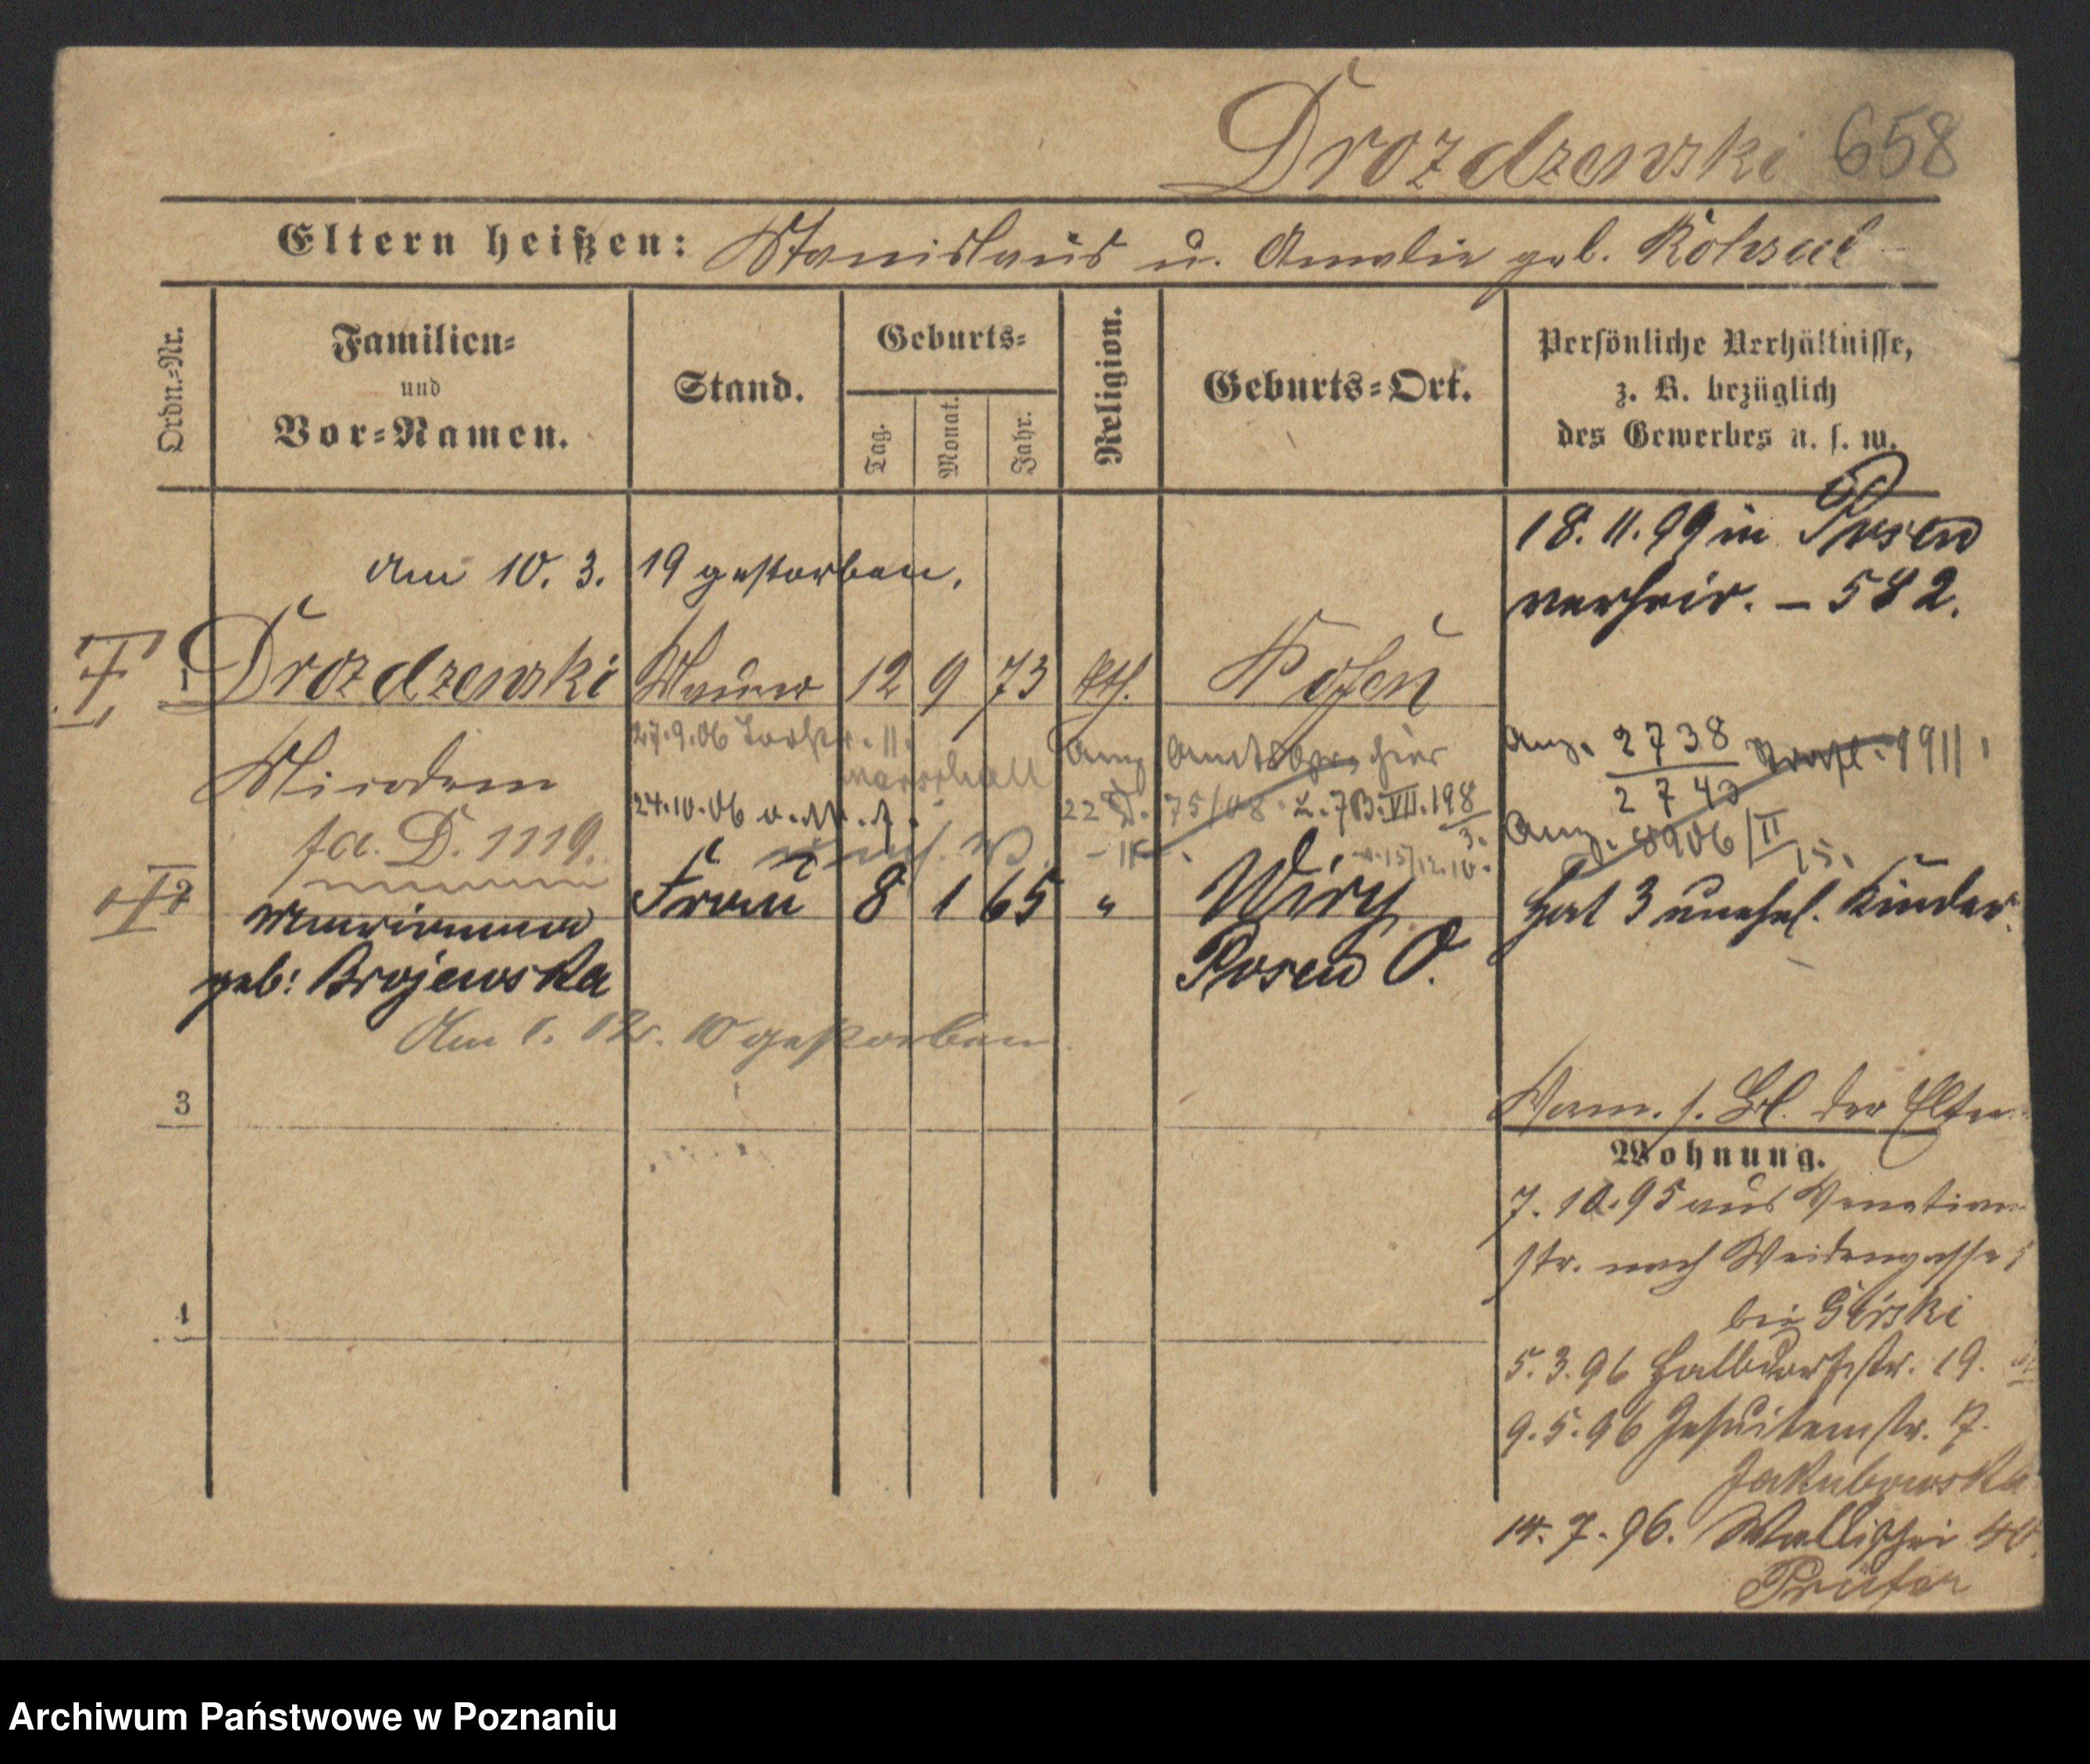 Drozdzewski 658
Eltern heißen: Stanislaus u. Amalie geb. Rohsal
Ordn.=Nr.
Familien=
und
Vor=Namen.
Stand.
Geburts=
Tag.
Monat.
Jahr.
Religion.
Geburts=Ort.
Persönliche Verhältnisse,
z. B. bezüglich
des Gewerbes u. s. w.
18. 11. 99 in Posen
verheir. – 582.
Am 10. 3. 19 gestorben.
1 Drozdzewski Maurer 12 9 73 kth. Posen
27.9.06
Marschall
Anz. hier
Anz. 2738 1911
2740
24.10.06
22 D. 75/08. L. 7 B. VII. 198
3.
fa. D. 1119.
Anz. 8906/II
15.
v. 15/12.10.
2 Frau 8 1 65 " Wiry
Hat 3 unehel. Kinder.
Marianna
geb: Brojewska
Posen O.
Am 1. 12. 10 gestorben
3
Verm. s. Bl. der Eltern
Wohnung.
7. 10. 95 aus Venetian
str. nach Weidengasse
bei Górski
4
5. 3. 96 Halbdorfstr. 19.
9. 5. 96 Jesuitenstr. 12.
Jakubowska
14. 7. 96. Wallischei 40
Prüfer
Archiwum Państwowe w Poznaniu